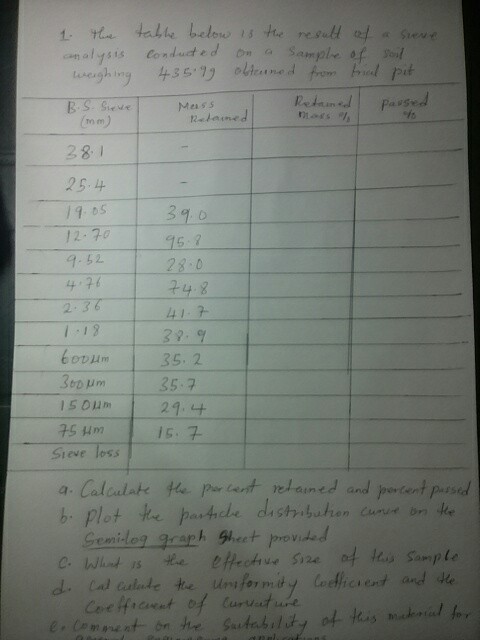 1. The table below is the result of a sieve
analysis conducted on a sample of soil
weighing 435.9g obtained from trial pit
B.S. Sieve (mm) Mass Retained Retained mass % passed %
38.1 -
25.4 -
19.05 39.0
12.70 95.8
9.52 28.0
4.76 74.8
2.36 41.7
1.18 38.9
600µm 35.2
300µm 35.7
150µm 29.4
75µm 15.7
Sieve loss
a. Calculate the percent retained and percent passed
b. Plot the particle distribution curve on the
Semilog graph Sheet provided
c. What is the effective size of this sample
d. Calculate the Uniformity Coefficient and the
Coefficient of Curvature
e. Comment on the suitability of this material for